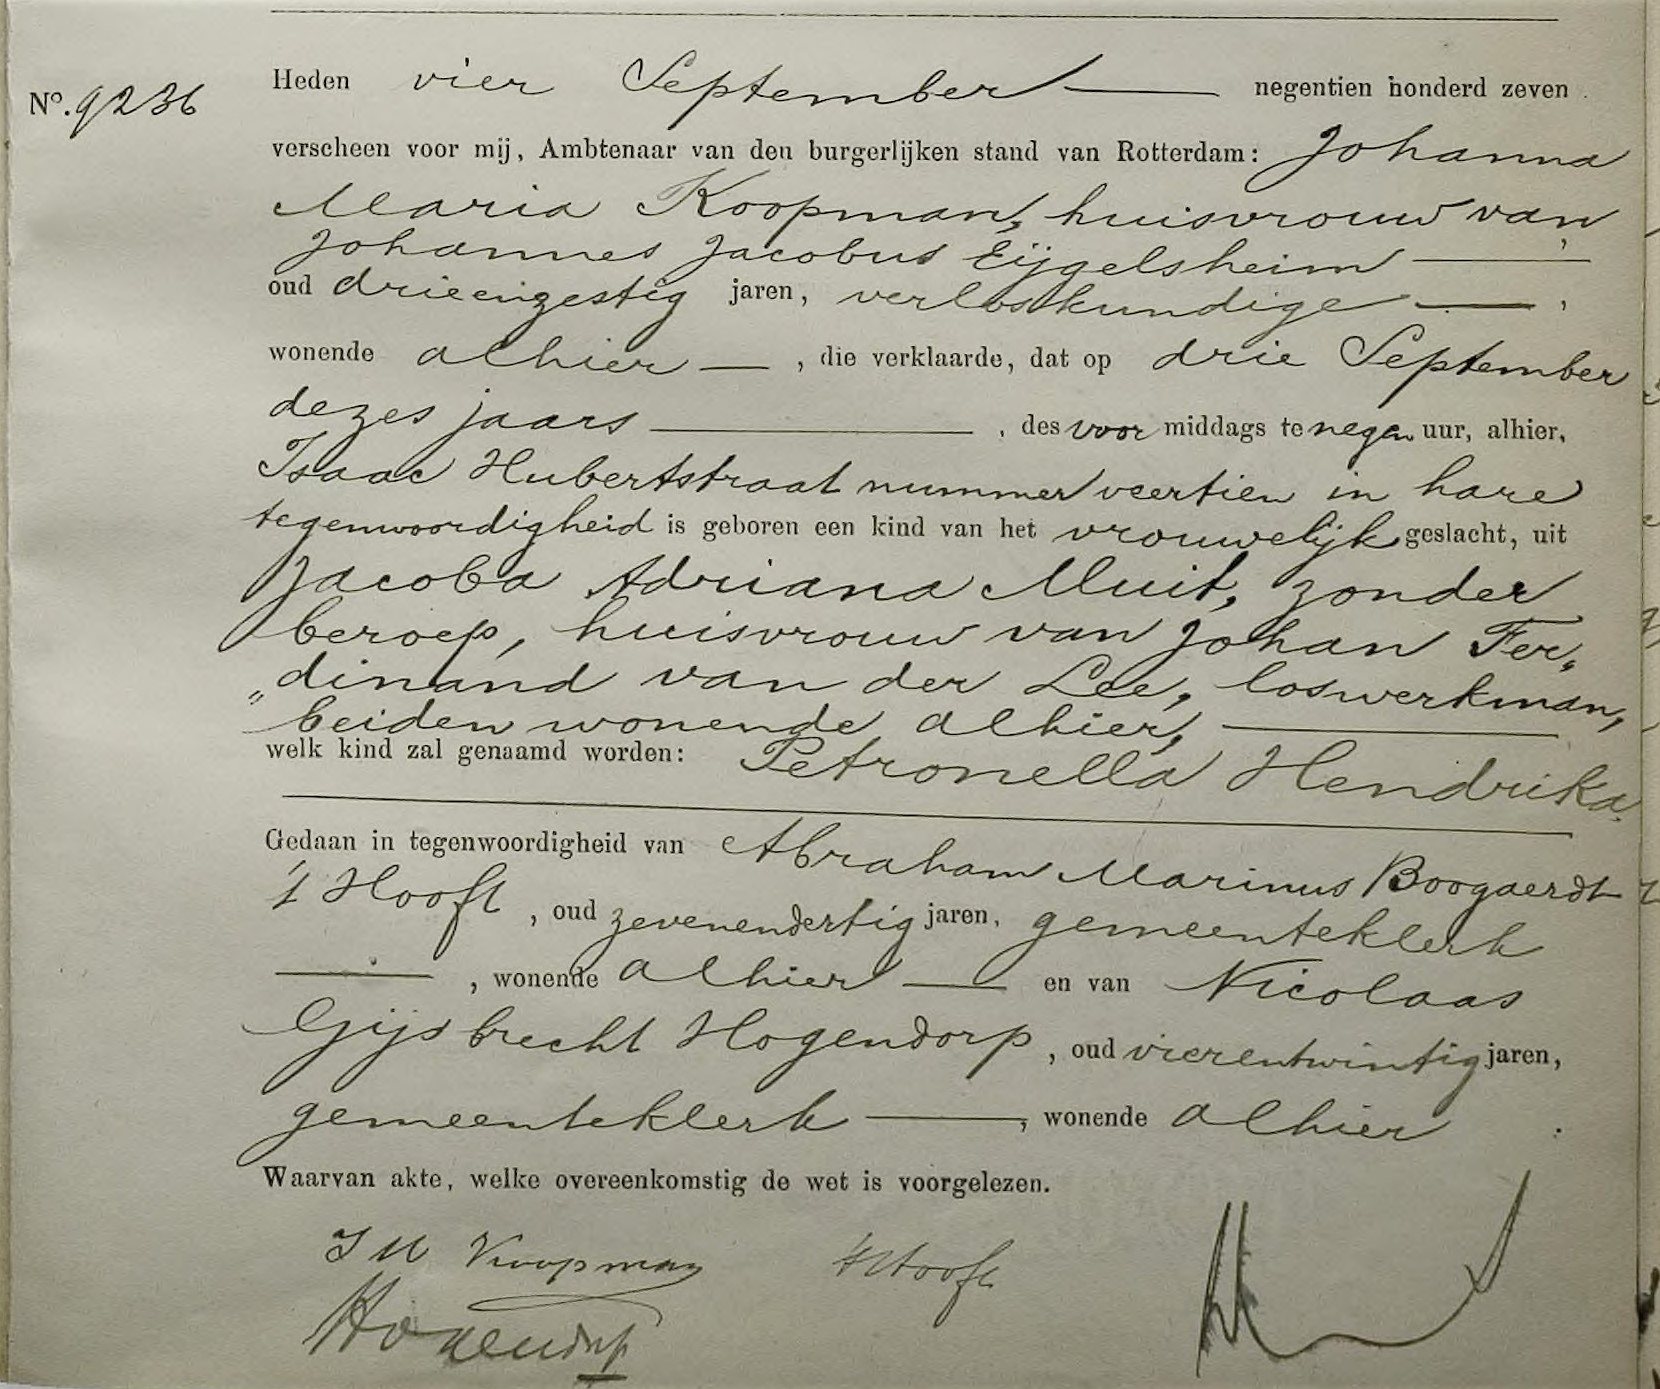 Nº. 9236
Heden vier September negentien honderd zeven
verscheen voor mij, Ambtenaar van den burgerlijken stand van Rotterdam: Johanna
Maria Koopman, huisvrouw van
Johannes Jacobus Eijgelsheim,
oud drieenzestig jaren, verloskundige,
wonende alhier, die verklaarde, dat op drie September
dezes jaars, des voor middags te negen uur, alhier,
Isaac Hubertstraat nummer veertien in hare
tegenwoordigheid is geboren een kind van het vrouwelijk geslacht, uit
Jacoba Adriana Muit, zonder
beroep, huisvrouw van Johan Fer„
„dinand van der Lee, loswerkman,
beiden wonende alhier,
welk kind zal genaamd worden: Petronella Hendrika.
Gedaan in tegenwoordigheid van Abraham Marinus Boogaerdt
't Hooft, oud zevenendertig jaren, gemeenteklerk
, wonende alhier en van Nicolaas
Gijsbrecht Hogendorp, oud vierentwintig jaren,
gemeenteklerk, wonende alhier.
Waarvan akte, welke overeenkomstig de wet is voorgelezen.
J M Koopman 't Hooft
Hogendorp